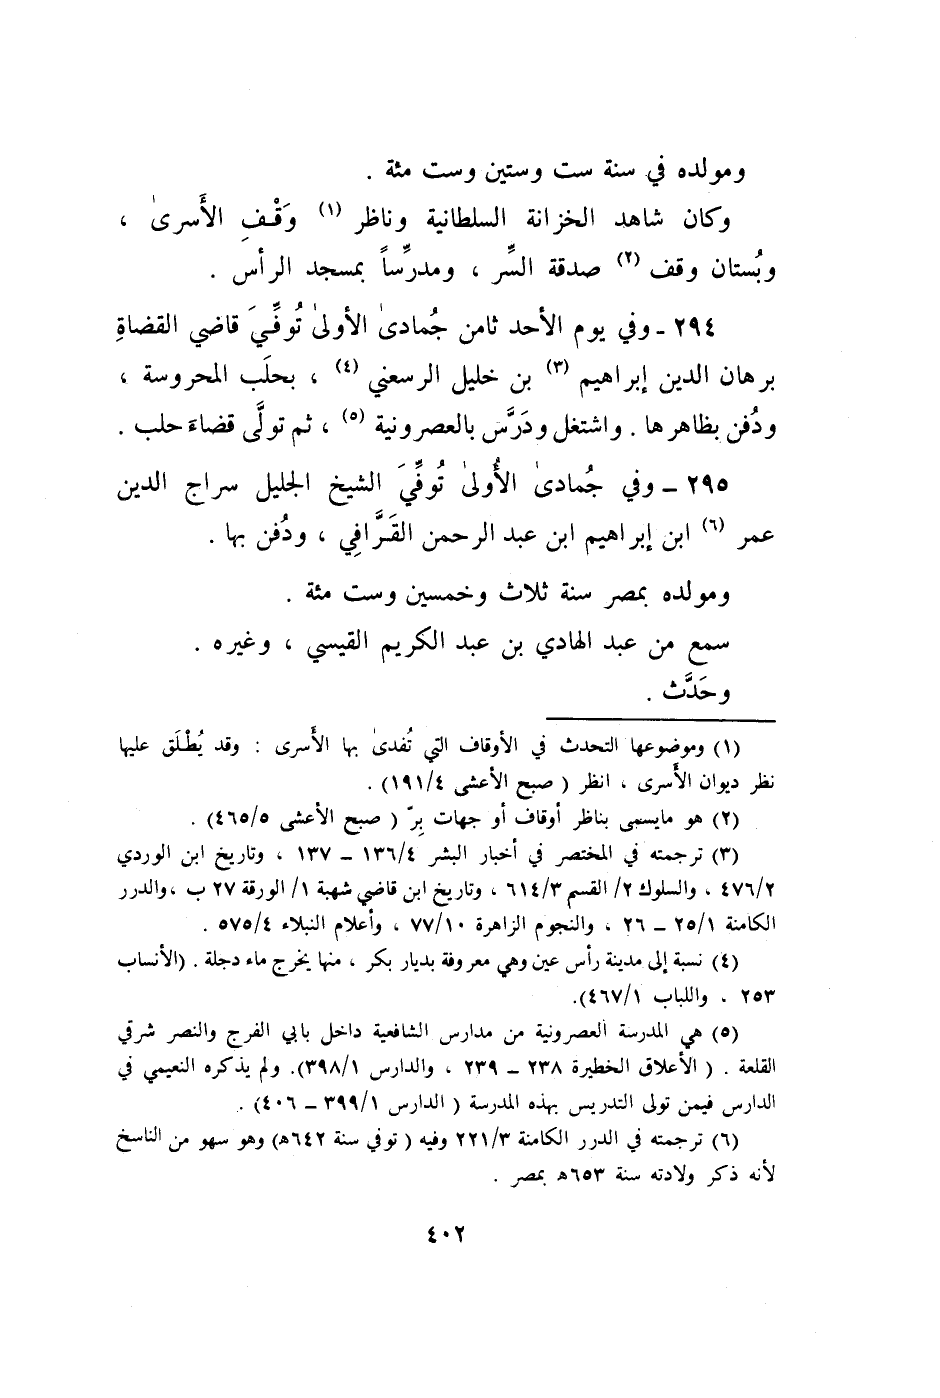 ومولده في سنة ست وستين وست مئة .
وكان شاهد الخزانة السلطانية وناظر (١) وَقْفِ الأَسرىٰ ،
وبُستان وقف (٢) صدقة السِّر ، ومدرِّساً بمسجد الرأس .
٢٩٤ ـ وفي يوم الأحد ثامن جُمادىٰ الأولىٰ تُوفِّيَ قاضي القضاةِ
برهان الدين إبراهيم (٣) بن خليل الرسعني (٤) ، بحلَب المحروسة ،
ودُفن بظاهرها . واشتغل ودَرَّس بالعصرونية (٥) ، ثم تولَّى قضاءَ حلب .
٢٩٥ ـ وفي جُمادىٰ الأُولىٰ تُوفِّيَ الشيخ الجليل سراج الدين
عمر (٦) ابن إبراهيم ابن عبد الرحمن القَرَّافِي ، ودُفن بها .
ومولده بمصر سنة ثلاث وخمسين وست مئة .
سمع من عبد الهادي بن عبد الكريم القيسي ، وغيره .
وحَدَّث .
(١) وموضوعها التحدث في الأوقاف التي تُفدىٰ بها الأَسرى : وقد يُطْلَق عليها
نظر ديوان الأَسرى ، انظر ( صبح الأعشى ١٩١/٤) .
(٢) هو مايسمى بناظر أوقاف أو جهات بِرّ ( صبح الأعشى ٤٦٥/٥) .
(٣) ترجمته في المختصر في أخبار البشر ١٣٦/٤ ـ ١٣٧ ، وتاريخ ابن الوردي
٤٧٦/٢ ، والسلوك ٢/ القسم ٦١٤/٣ ، وتاريخ ابن قاضي شهبة ١/ الورقة ٢٧ ب ،والدرر
الكامنة ٢٥/١ ـ ٢٦ ، والنجوم الزاهرة ٧٧/١٠ ، وأعلام النبلاء ٥٧٥/٤ .
(٤) نسبة إلى مدينة رأس عين وهي معروفة بديار بكر ، منها يخرج ماء دجلة . (الأنساب
٢٥٣ ، واللباب ٤٦٧/١).
(٥) هي المدرسة العصرونية من مدارس الشافعية داخل بابي الفرج والنصر شرقي
القلعة . ( الأعلاق الخطيرة ٢٣٨ ـ ٢٣٩ ، والدارس ٣٩٨/١). ولم يذكره النعيمي في
الدارس فيمن تولى التدريس بهذه المدرسة ( الدارس ٣٩٩/١ ـ ٤٠٦) .
(٦) ترجمته في الدرر الكامنة ٢٢١/٣ وفيه ( توفي سنة ٦٤٢ه) وهو سهو من الناسخ
لأنه ذكر ولادته سنة ٦٥٣ه بمصر .
٤٠٢